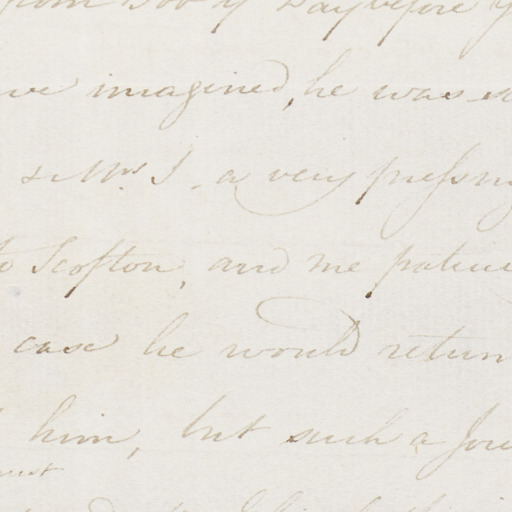 from Boo y Day before y
we imagined, he was so
& Mrs. S. a very pressing
to Scofton, and me particu
case he would return
him, but such a Jou